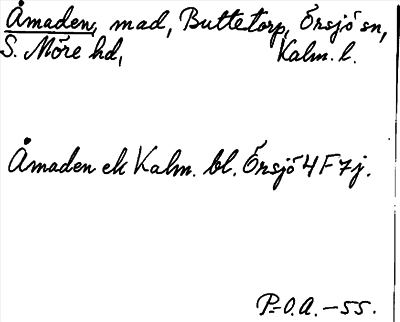 Åmaden, mad, Buttetorp, Örsjö sn,
S. Möre hd, Kalm. l.
Åmaden ek Kalm. bl. Örsjö 4F7j.
P=O.A.-55.